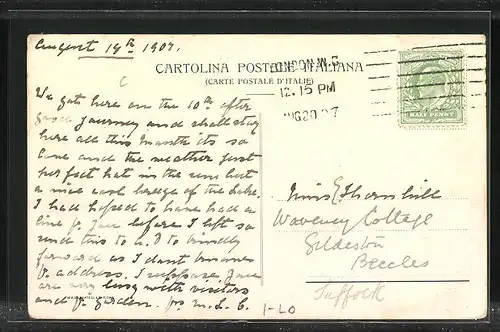 August 19th 1907.
CARTOLINA POSTALE ITALIANA
(CARTE POSTALE D'ITALIE)
LONDON. W.C
12.15 PM
AUG 20 07
HALF PENNY
We got here on the 10th after
good journey and shall stay
here all this month its so
love and the weather just
perfect hot in the sun but
a nice cool breeze of the Lake.
I had hoped to have had a
line fr. you before I left so
send this to to kindly
forward as I dont know
yr. address. I suppose you
are very busy with visitors
and yr garden.
Miss E Thornhill
Waveney Cottage
Gildeston
Beccles
Suffolk
1-LO